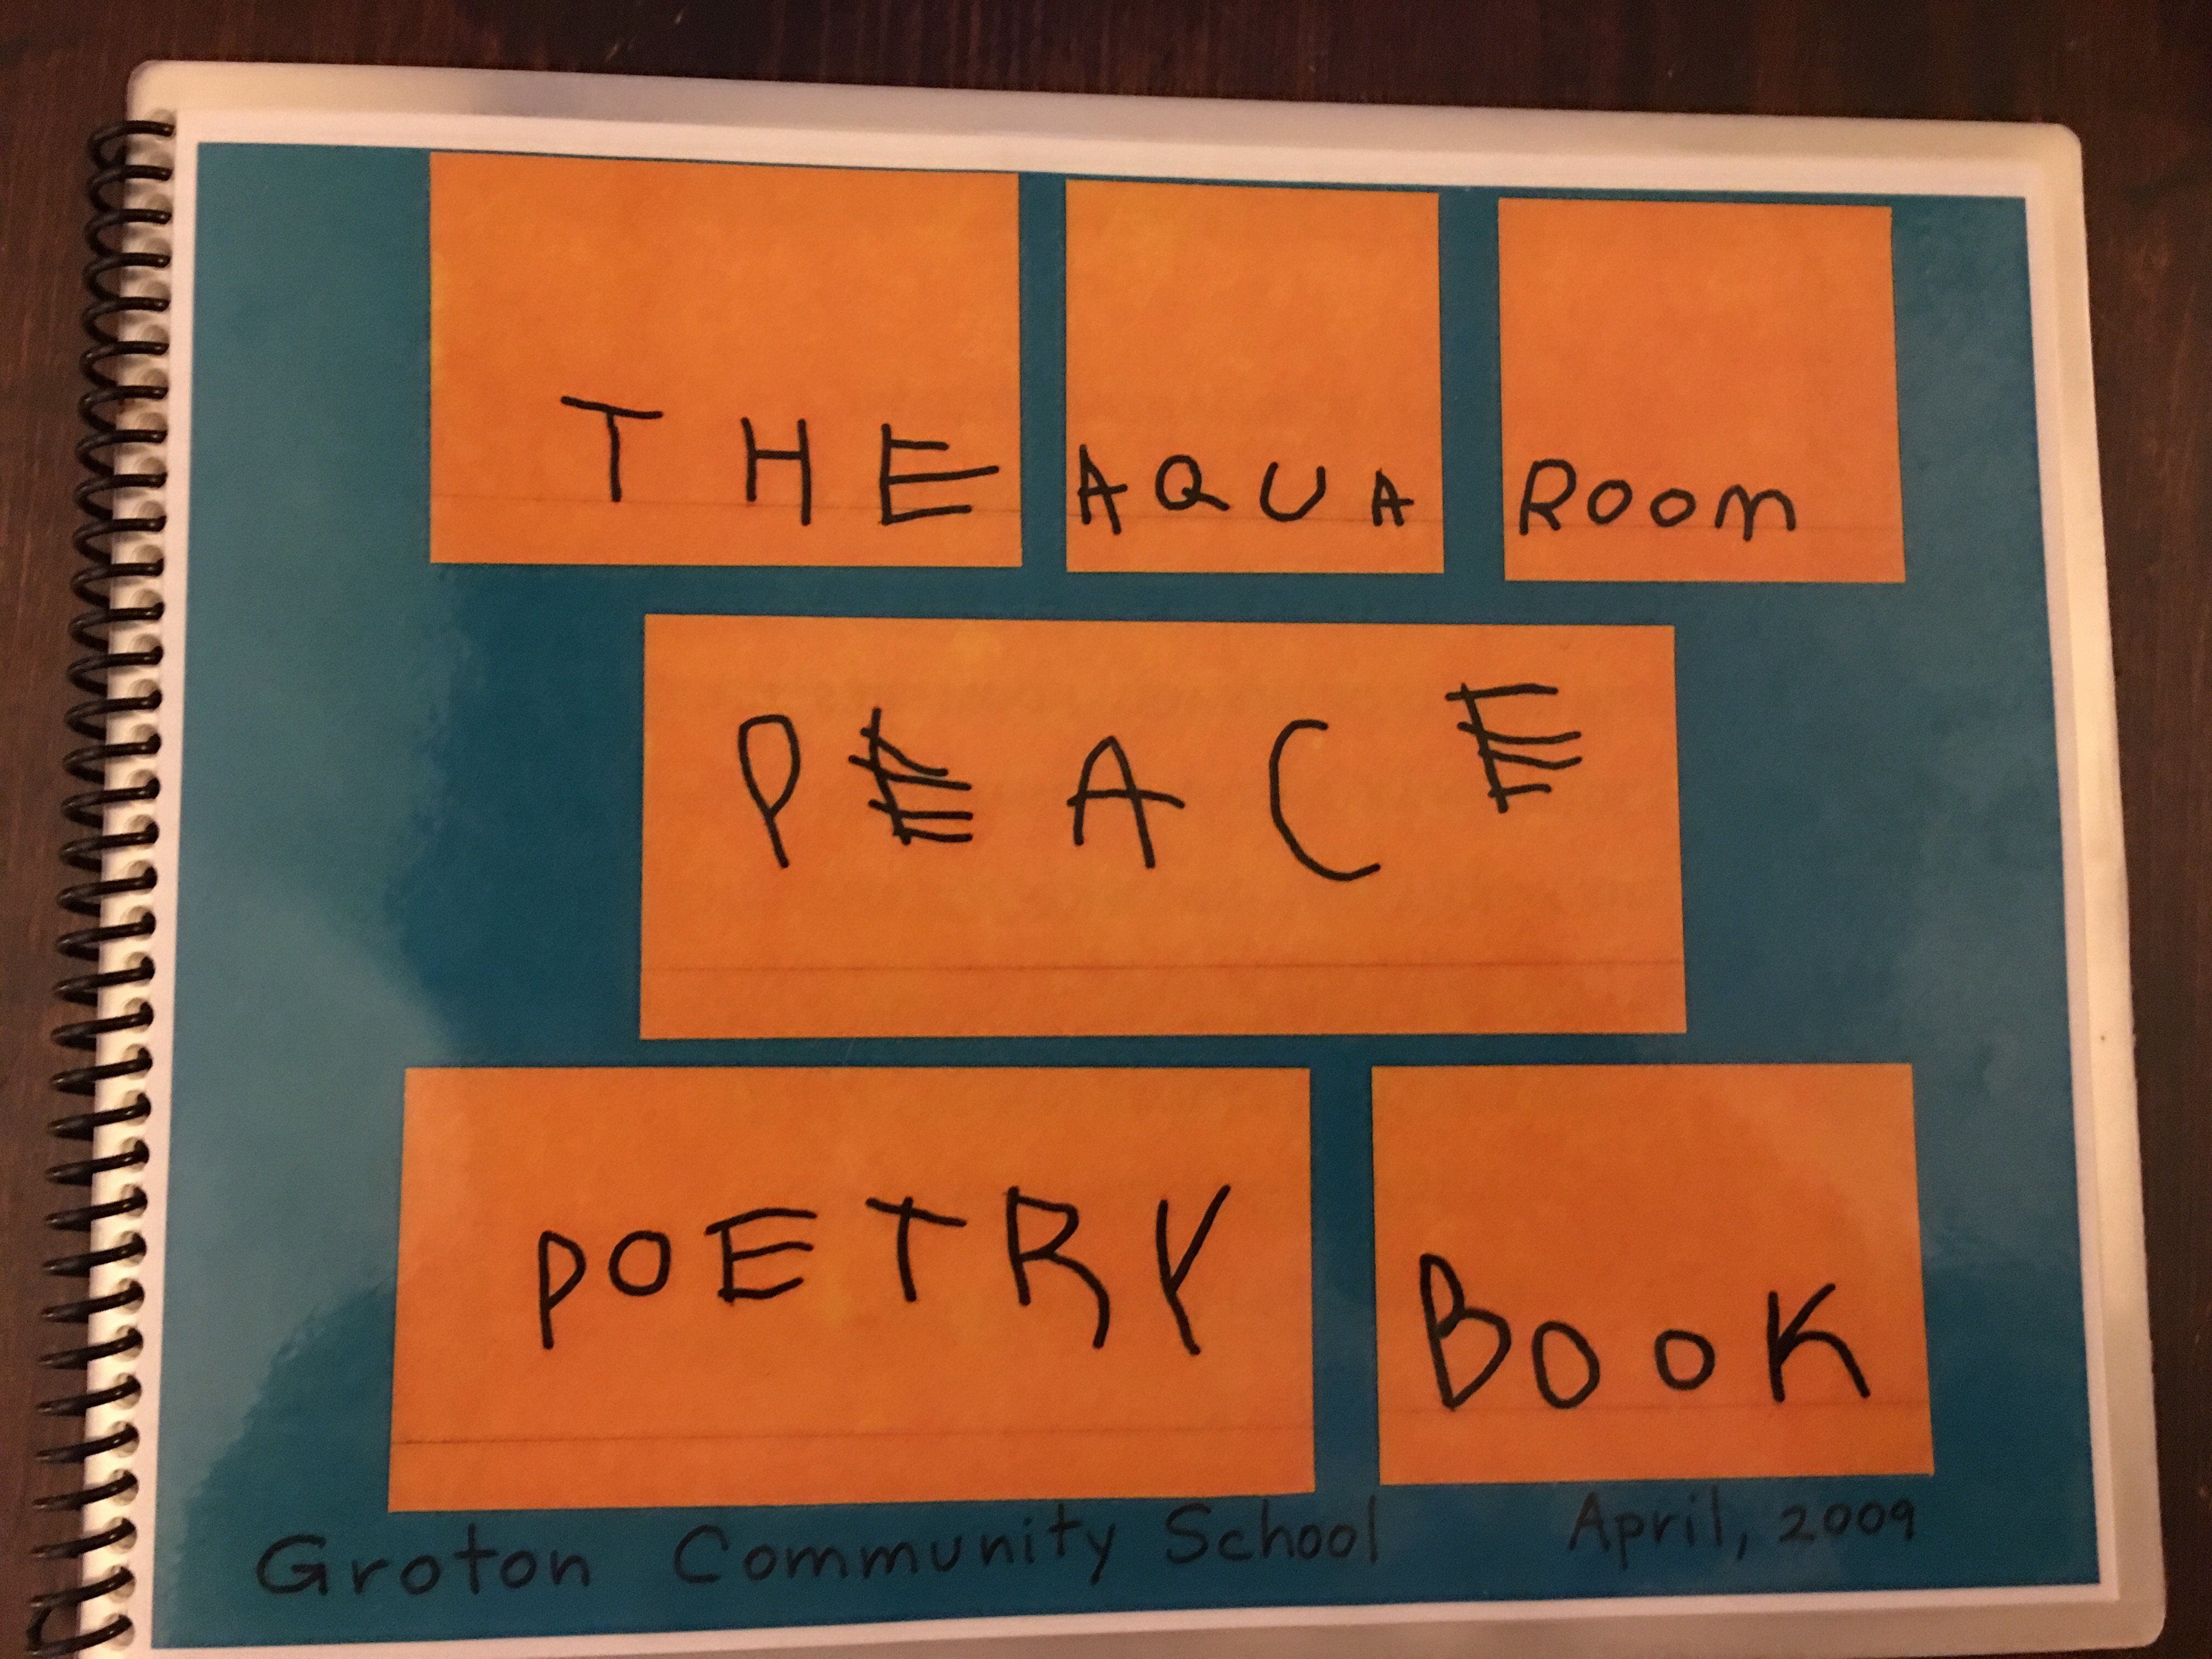 THE AQUA ROOM
PEACE
POETRY BOOK
Groton Community School April, 2009